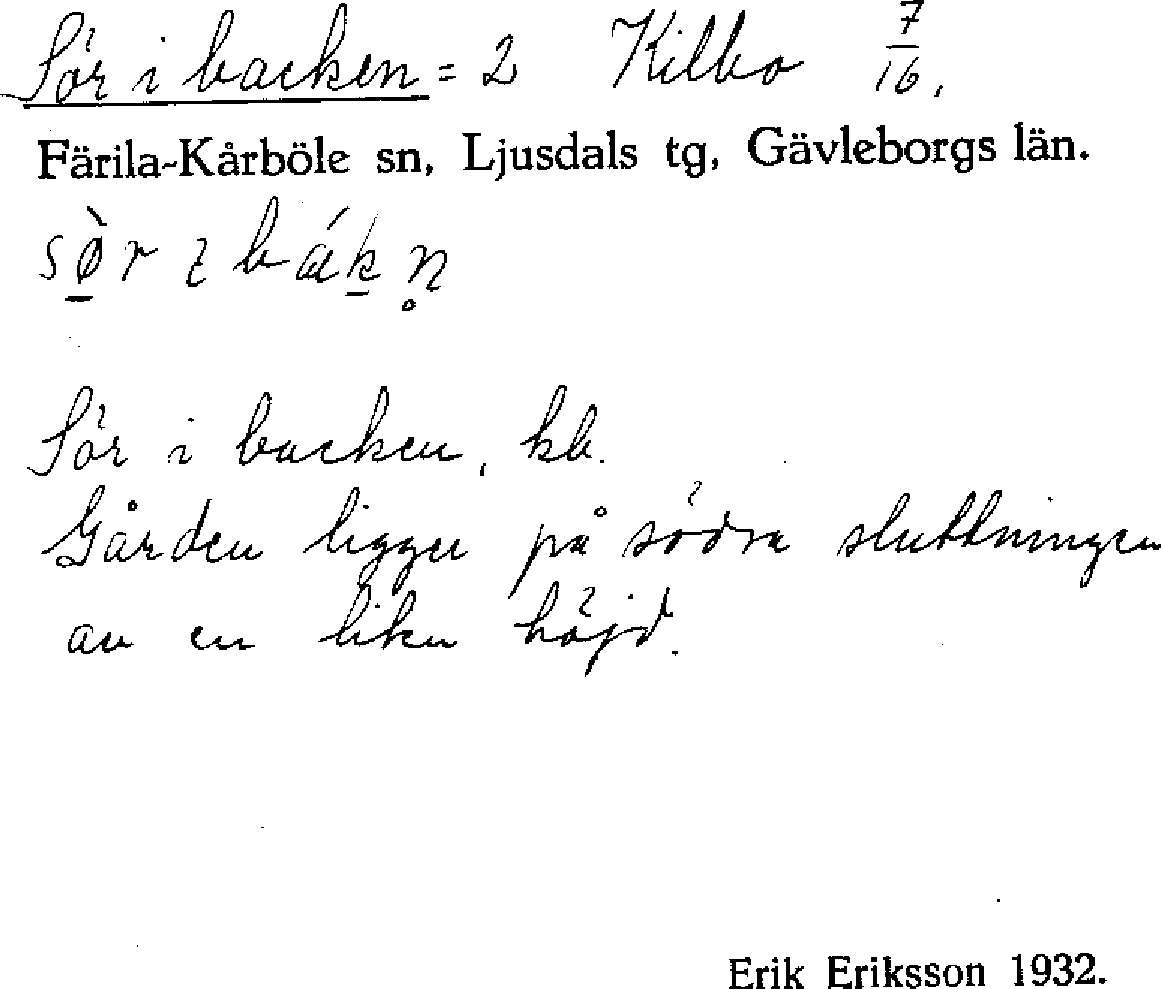 Sör i backen = 2 Kilbo 7/16.
Färila-Kårböle sn, Ljusdals tg, Gävleborgs län.
Sör i backen, kb.
Gården ligger på södra sluttningen
av en liten höjd.
Erik Eriksson 1932.